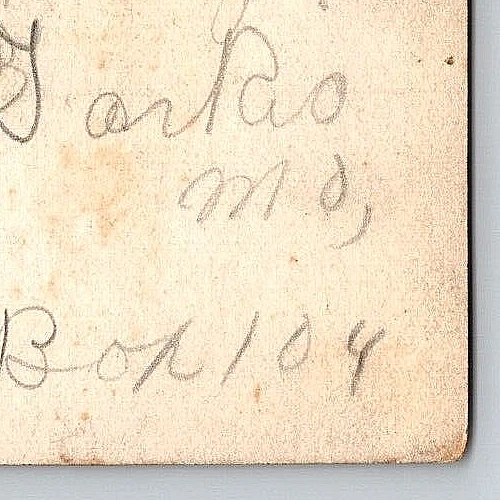 Tarkio
Mo,
Box 104